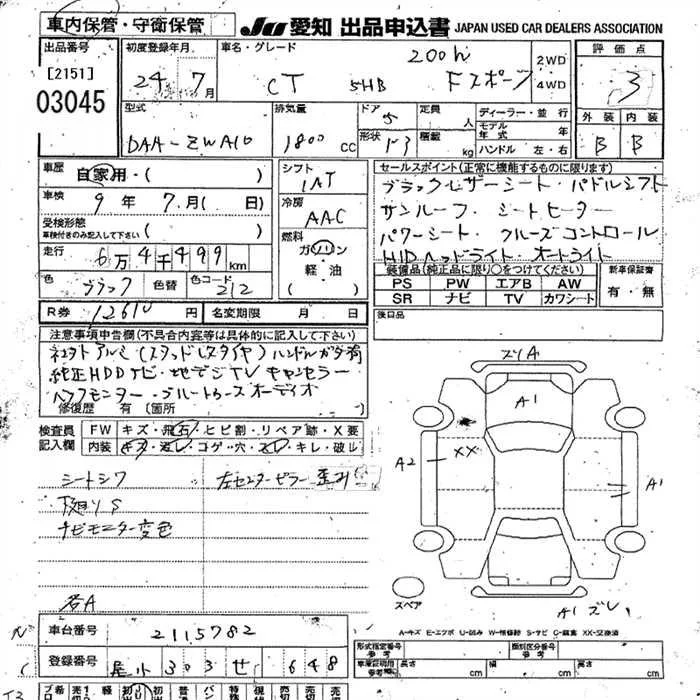 車内保管・守衛保管
JU 愛知 出品申込書 JAPAN USED CAR DEALERS ASSOCIATION
出品番号
[2151]
03045
初度登録年月
24年 7月
車名・グレード
CT 5HB
200h
Fスポーツ
2WD
4WD
評価点
3
外装 内装
B B
型式
DAA-ZWA10
排気量
1800 CC
ドア 5
形状
定員 人
積載 kg
ディーラー・並行
モデル年式 年
ハンドル 左・右
車歴 自家用・( )
車検 9年 7月( 日)
受検形態
車検付きのみ記入して下さい ( )
走行 6万4千499km
色 ブラック 色替 色コード 212
シフト
IAT
冷房
AAC
燃料
ガソリン
軽油
( )
セールスポイント(正常に機能するものに限ります)
ブラックレザーシート・パドルシフト
サンルーフ・シートヒーター
パワーシート・クルーズコントロール
HIDヘッドライト・オートライト
装備品(純正品に限り○をつけてください)
PS PW エアB AW
SR ナビ TV カワシート
新車保証書
有・無
R券 12610円 名変期限 月 日
後日品
注意事項申告欄(不具合内容等は具体的に記入して下さい)
純正HDDナビ・地デジTVキャンセラー
バックモニター・ブルートゥースオーディオ
修復歴 有 〔箇所
検査員記入欄
FW キズ・飛石・ヒビ割・リペア跡・X要
内装 キズ・汚レ・コゲ・穴・スレ・キレ・破レ
シートシワ
左センターピラー歪み
下廻りS
ナビモニター変色
各A
ズリA
A1
A2
XX
A1
A1 ズレ
スペア
A-キズ E-エクボ U-凹み W-補修跡 S-サビ C-腐食 XX-交換済
車台番号 2115782
登録番号 尾小 303 せ 648
形式指定番号 参考
類別区分番号 参考
車庫証明用 参考
長さ cm 幅 cm 高さ cm